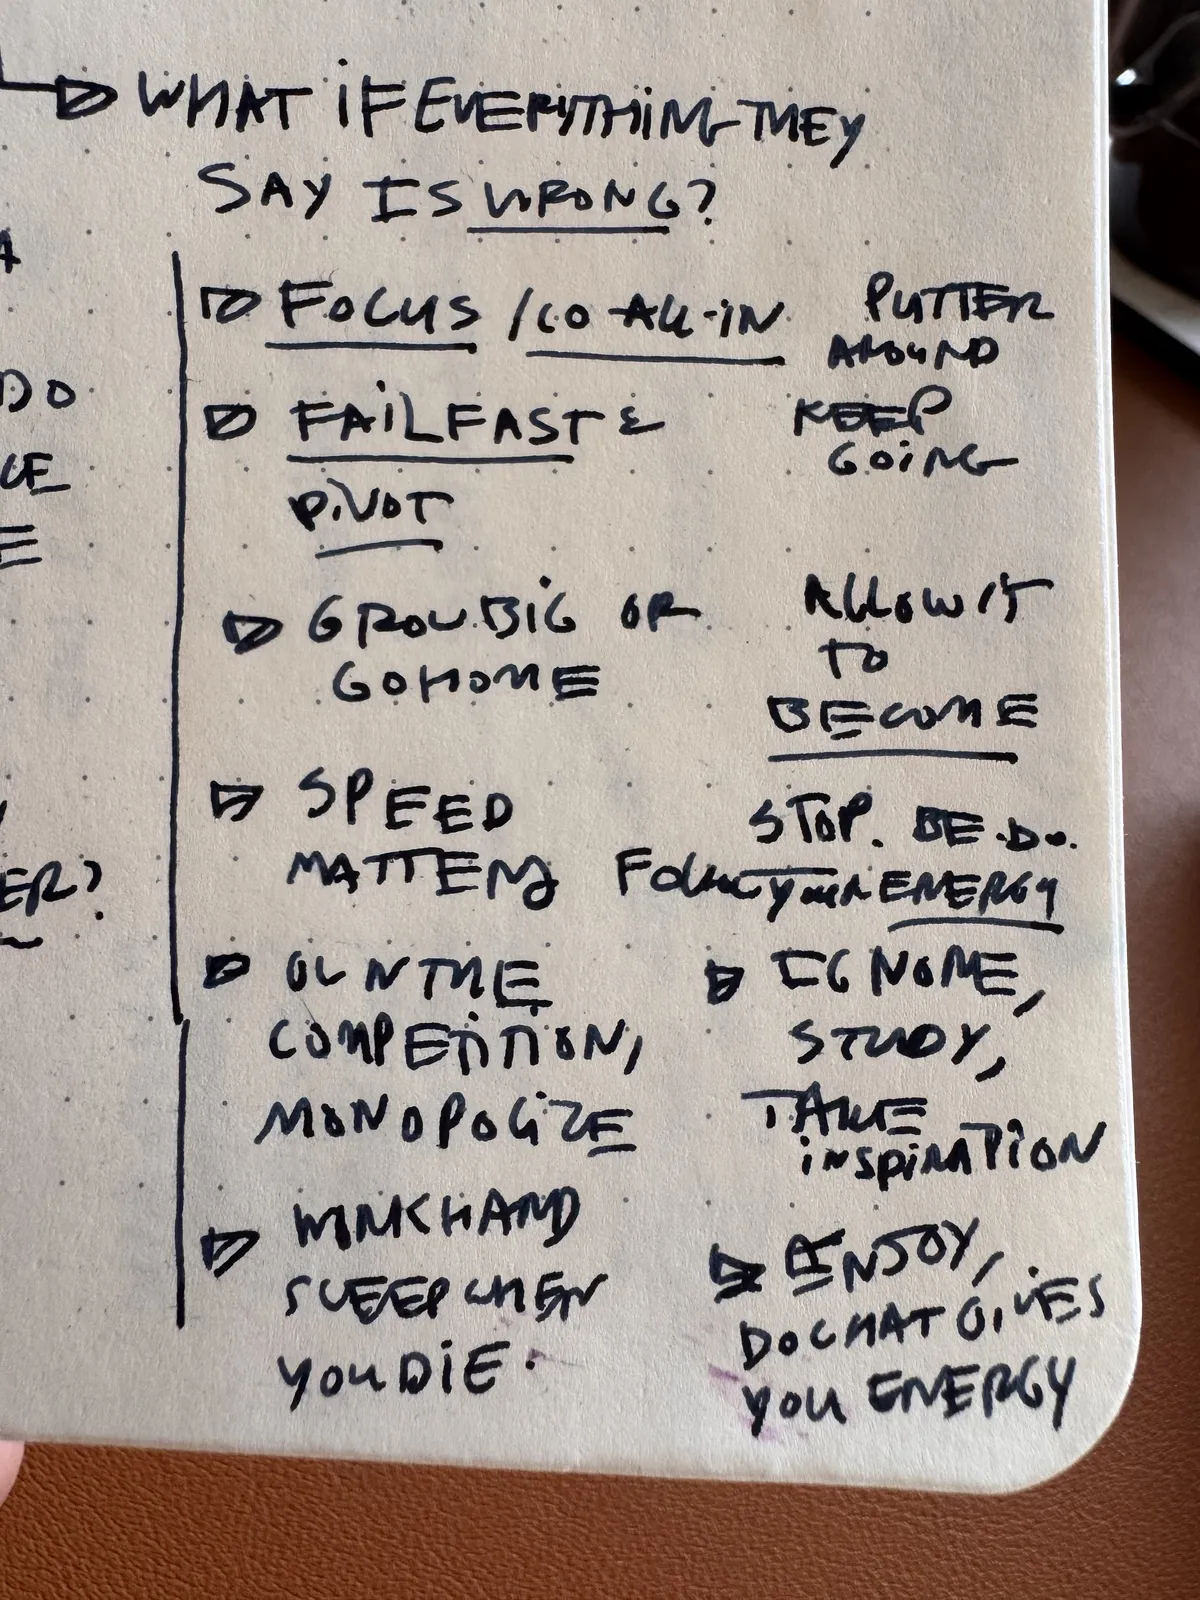 WHAT IF EVERYTHING THEY
SAY IS WRONG?
FOCUS / GO ALL-IN
PUTTER
AROUND
FAIL FAST &
PIVOT
KEEP
GOING
GROW BIG OR
GO HOME
ALLOW IT
TO
BECOME
SPEED
MATTERS
STOP. BE. DO.
FOLLOW your ENERGY
OWN THE
COMPETITION,
MONOPOLIZE
IGNORE,
STUDY,
TAKE
INSPIRATION
WORK HARD
SLEEP WHEN
YOU DIE.
ENJOY,
DO WHAT GIVES
YOU ENERGY
A
DO
CE
E
ER?